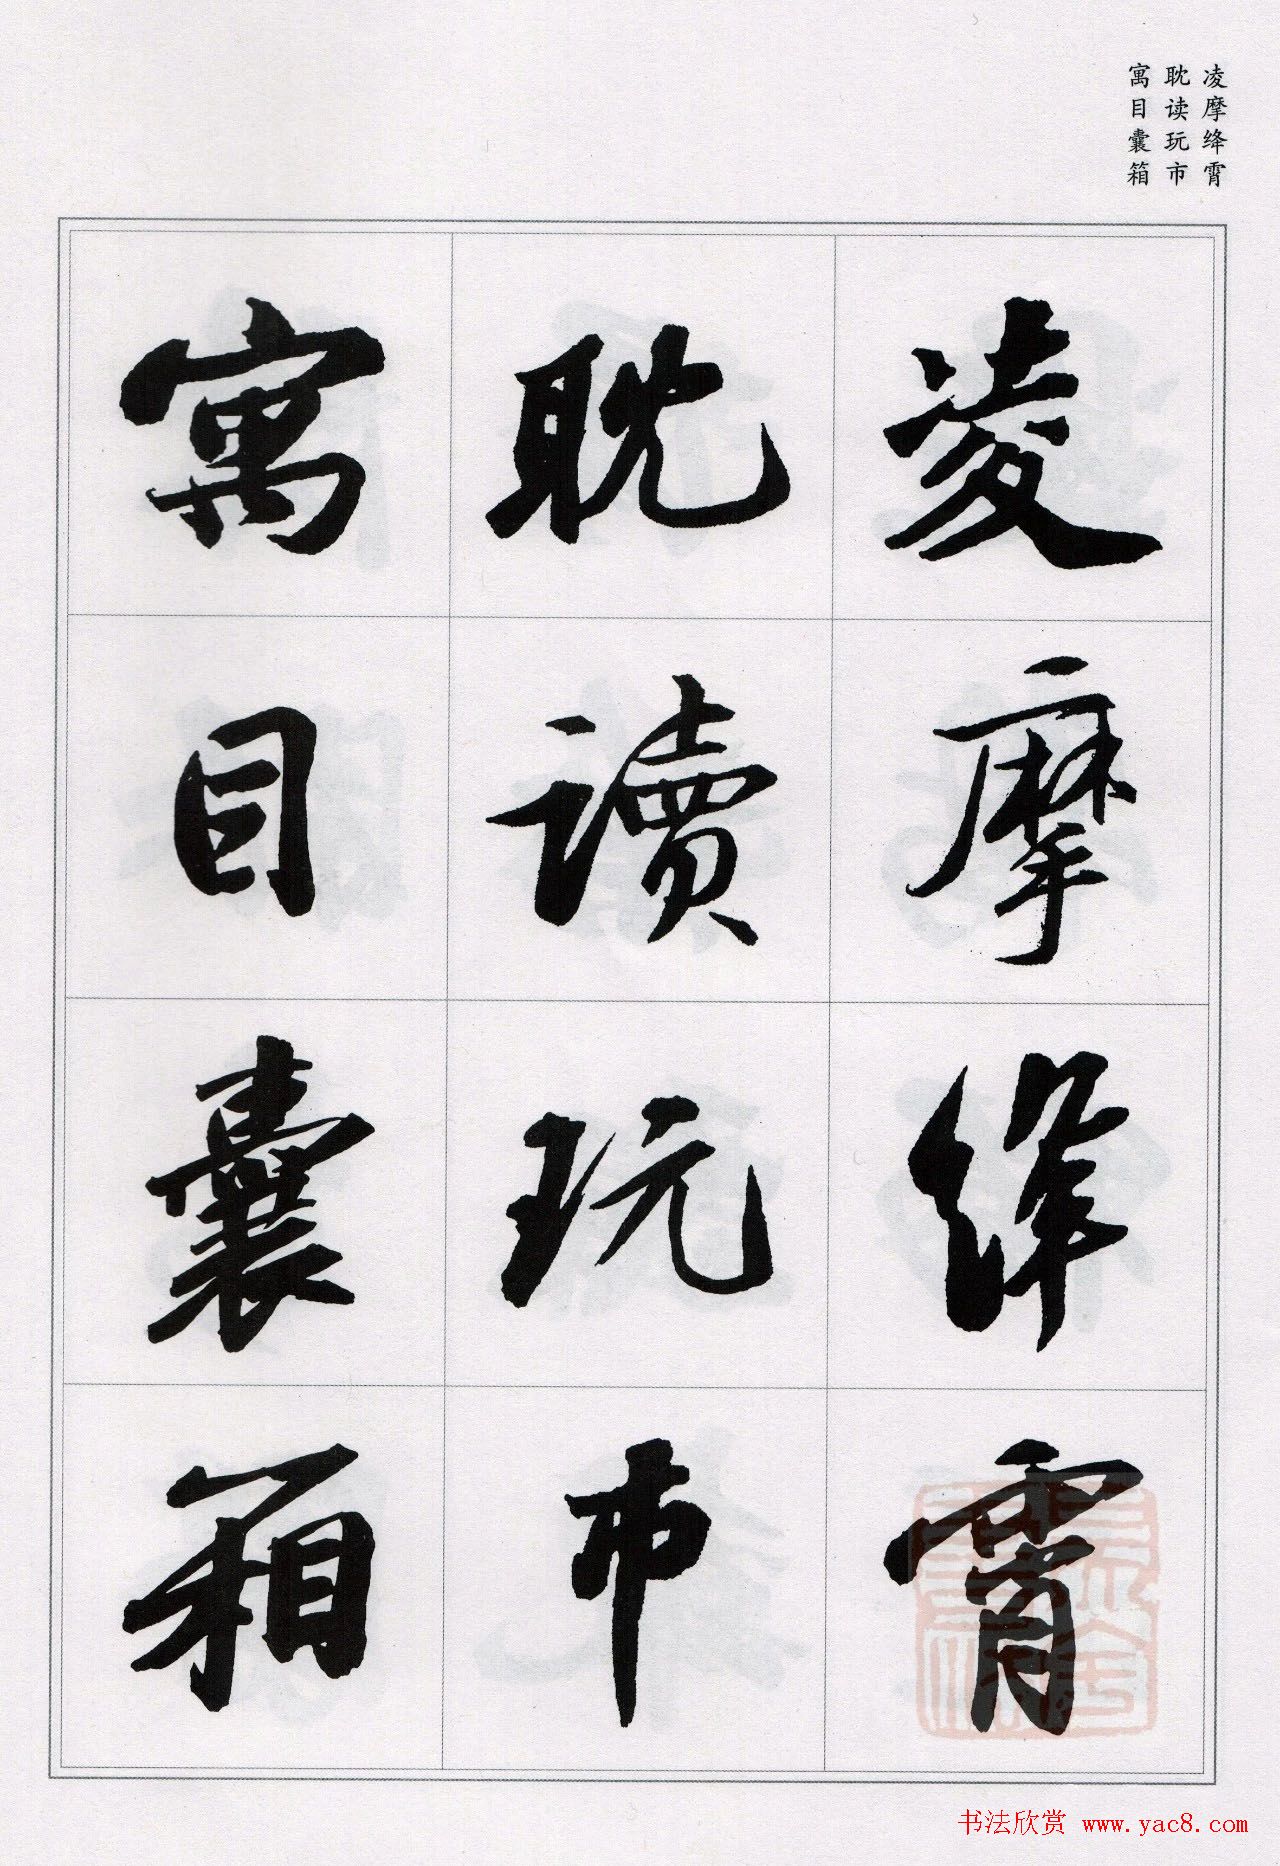 凌摩绛霄
耽读玩市
寓目囊箱
凌摩絳霄
耽讀玩市
寓目囊箱
书法欣赏 www.yac8.com